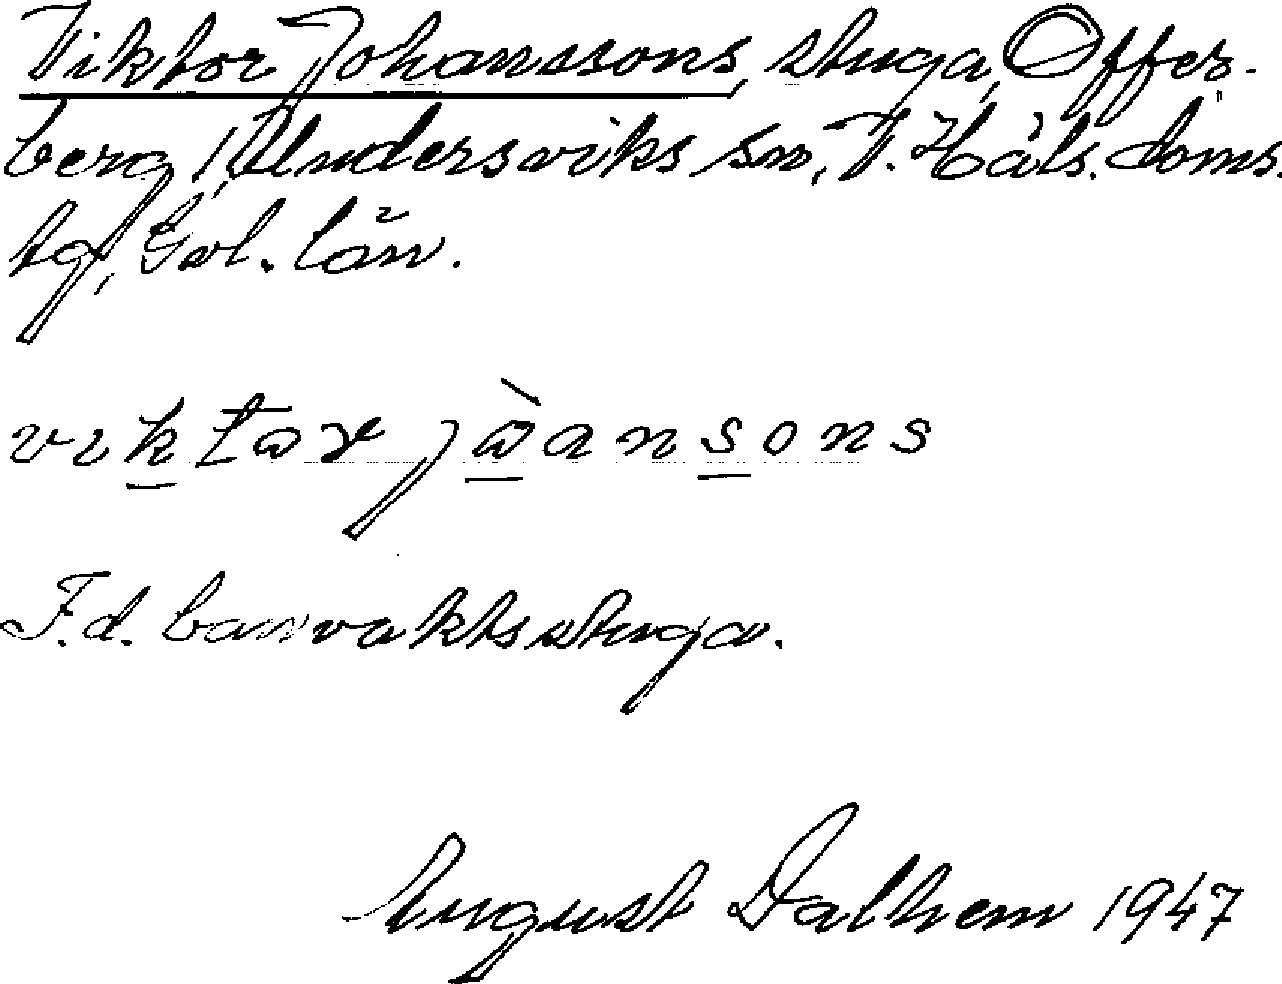 Viktor Johanssons, stuga, Offer-
berg 1, Undersviks sn, V. Häls. doms.
tg, Gvl. län.
viktor jὼansons
F.d. banvaktsstuga.
August Dalhem 1947